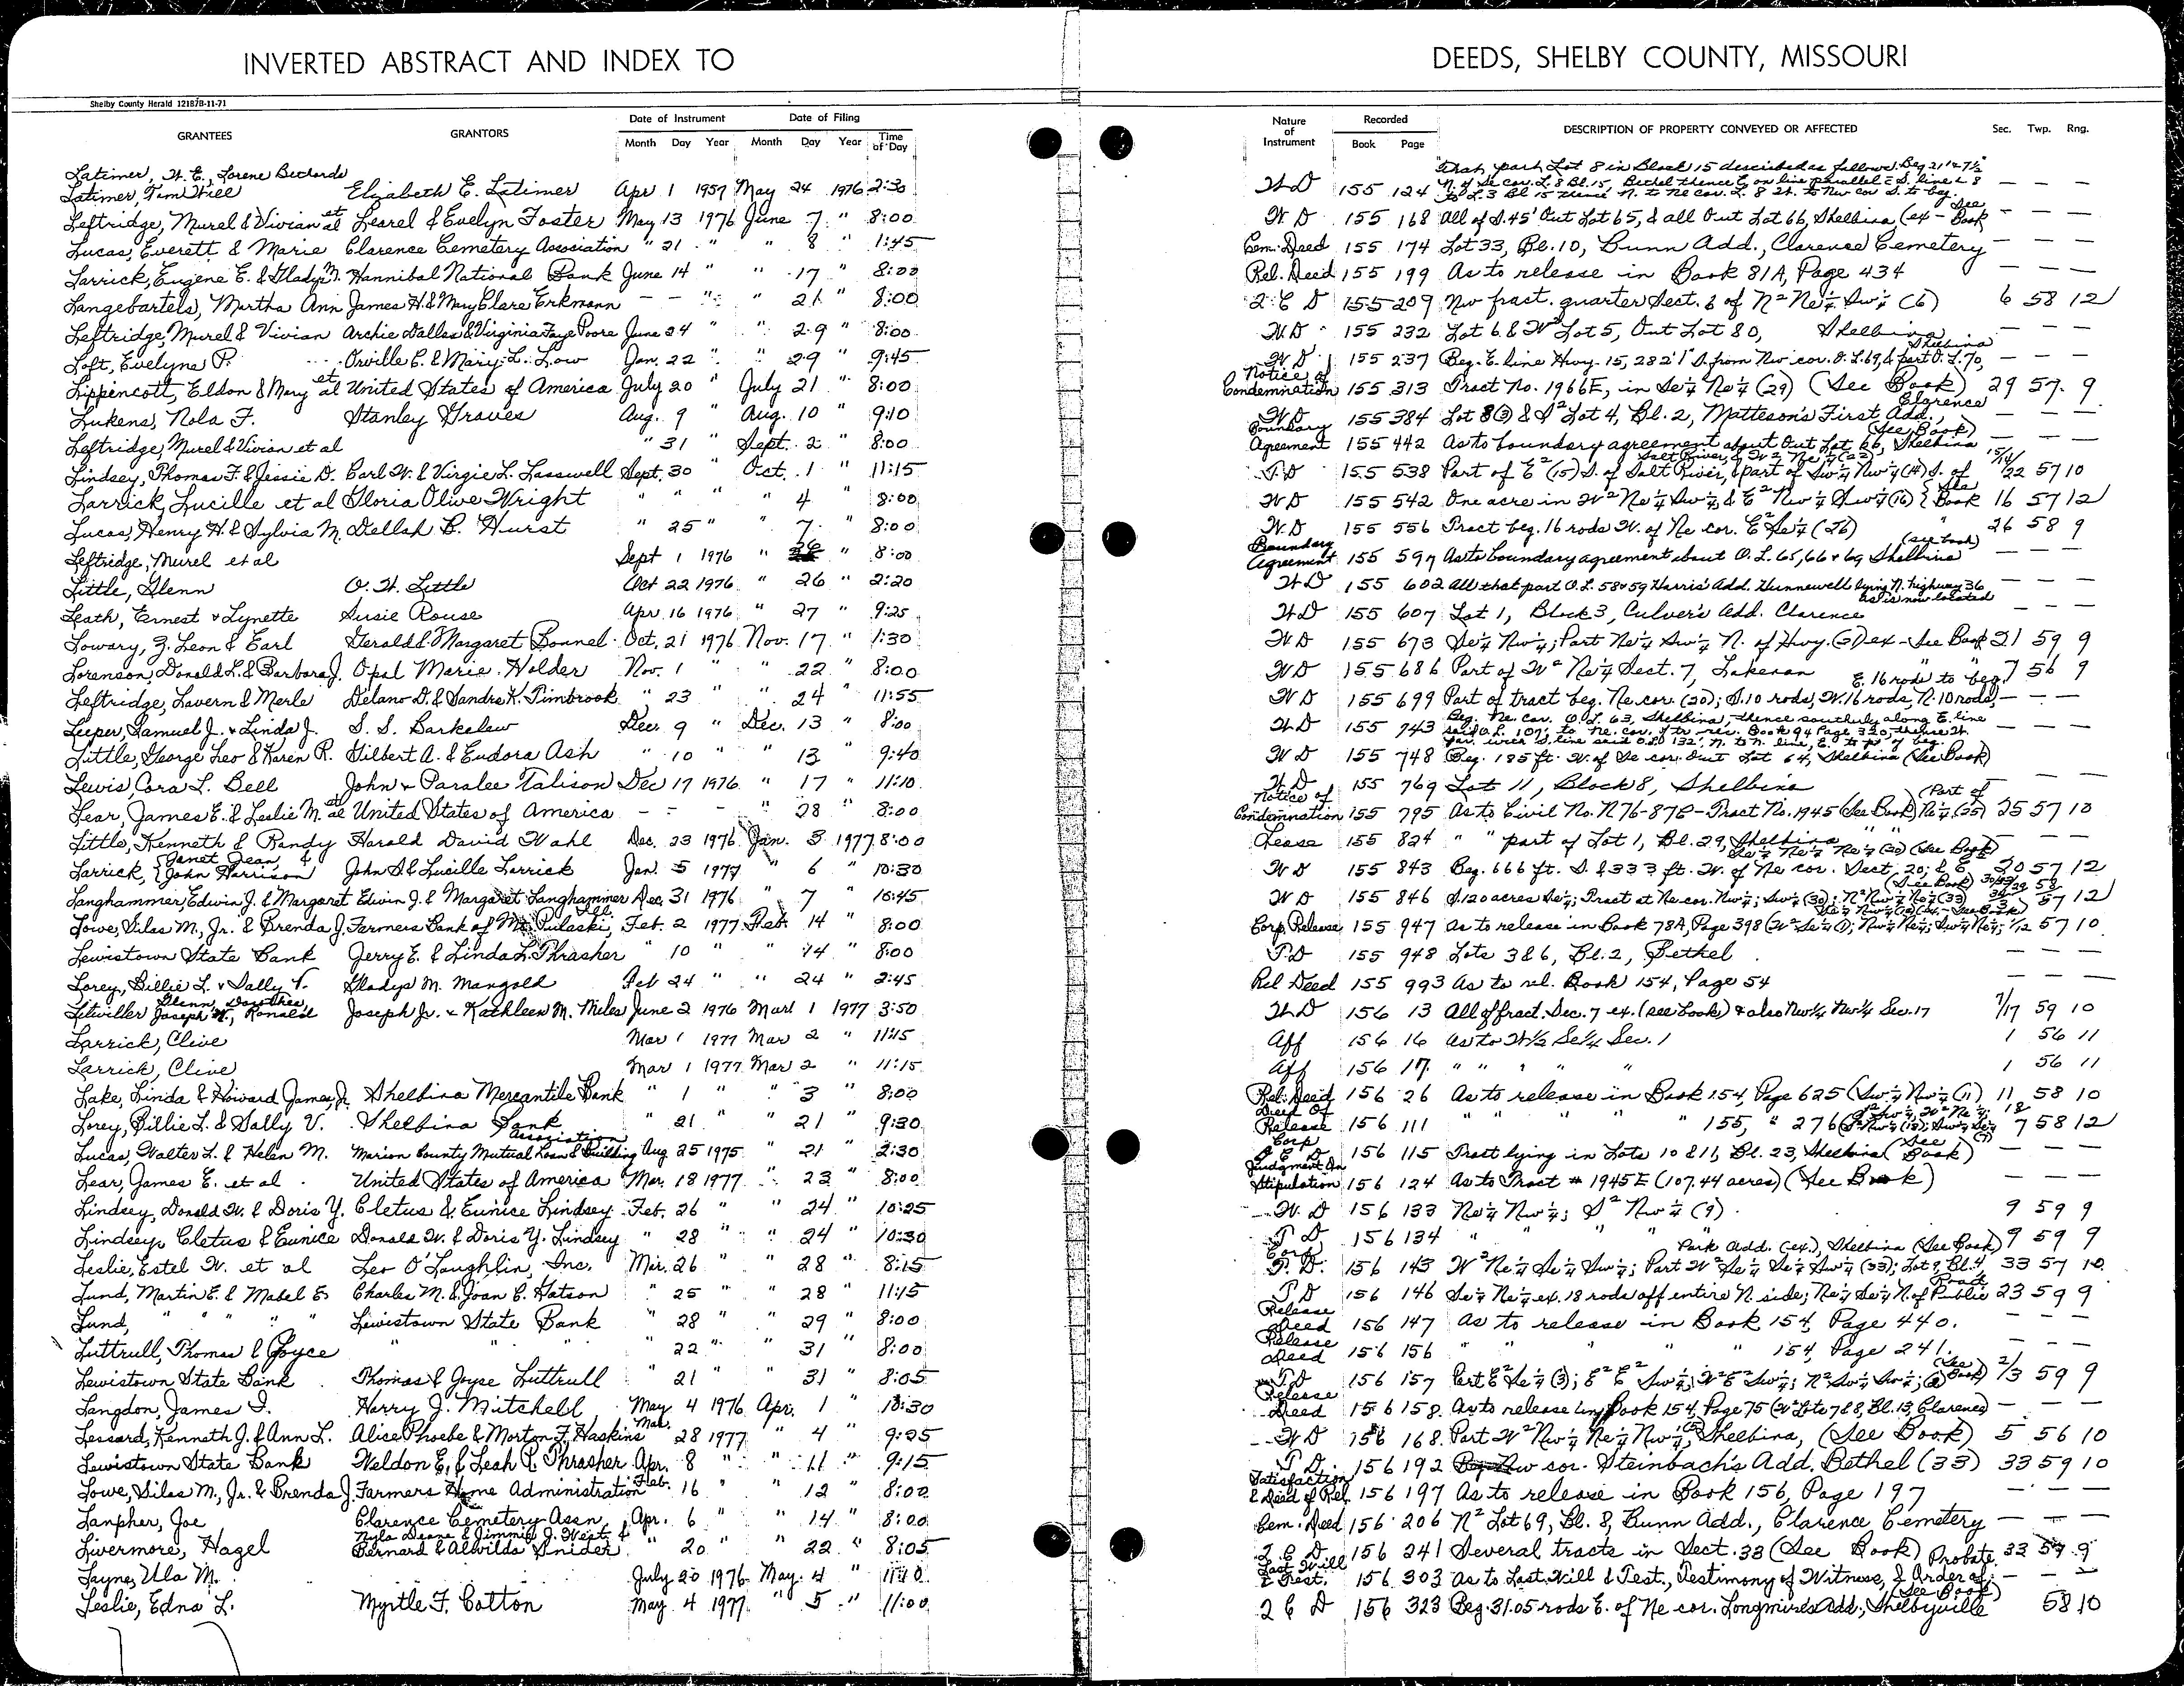 INVERTED ABSTRACT AND INDEX TO DEEDS, SHELBY COUNTY, MISSOURI
Shelby County Herald 12187B-11-71
GRANTEES GRANTORS Date of Instrument Month Day Year Date of Filing Month Day Year Time of Day Nature of Instrument Recorded Book Page DESCRIPTION OF PROPERTY CONVEYED OR AFFECTED Sec. Twp. Rng.
Latimer, H. E., Lorene Bechards
Latimer, Tim Will Elizabeth E. Latimer Apr 1 1957 May 24 1976 2:30 W D 155 124 That part Lot 8 in Block 15 described as follows, Beg 21' & 7½" N. of Se cor. L. 8 Bl. 15, Bethel thence E. on line parallel S. line L 8 — — —
Leftridge, Murel & Vivian et al Learel & Evelyn Foster May 13 1976 June 7 " 8:00 W D 155 168 All of S. 45' Out Lot 65, & all Out Lot 66, Shelbina, (ex - See Book — — —
Lucas, Everett & Marie Clarence Cemetery Association " 21 " " 8 " 1:45 Cem. Deed 155 174 Lot 33, Bl. 10, Bunn Add., Clarence Cemetery — — —
Larrick, Eugene E. & Gladys M. Hannibal National Bank June 14 " " 17 " 8:00 Rel. Deed 155 199 As to release in Book 81A, Page 434 — — —
Langebartels, Martha Ann James H. & Mary Clare Erkmann — — " " 21 " 8:00 2 C D 155 209 Nw fract. quarter Sect. 6 of N² Ne¼ Sw¼ (6) 6 58 12
Leftridge, Murel & Vivian Archie Dallas & Virginia Faye Poore June 24 " " 29 " 8:00 W.D 155 232 Lot 6 & W² Lot 5, Out Lot 80, Shelbina — — —
Loft, Evelyne P. Orville C. & Mary L. Low Jan. 22 " " 29 " 9:45 W D 155 237 Beg. E. line Hwy. 15, 282'1" S. from Nw cor. O. L. 69, & part O. L. 70, Shelbina — — —
Lippincott, Eldon & Mary et al United States of America July 20 " July 21 " 8:00 Notice of Condemnation 155 313 Tract No. 1966E, in Se¼ Ne¼ (29) (See Book) 29 57 9
Lukens, Nola F. Stanley Graves Aug. 9 " Aug. 10 " 9:10 W D 155 384 Lot 3 (3) & S² Lot 4, Bl. 2, Matteson's First Add., Clarence — — —
Leftridge, Murel & Vivian et al " 31 " Sept. 2 " 8:00 Boundary Agreement 155 442 As to boundary agreement about Out Lot 66, Shelbina (See Book) — — —
Lindsey, Thomas F. & Jessie D. Carl W. & Virgie L. Lasswell Sept. 30 " Oct. 1 " 11:15 T.D 155 538 Part of E² (15) S. of Salt River, & part of Sw¼ Nw¼ (14) S. of Salt River, & W² Ne¼ (22) 15/14/22 57 10
Larrick, Lucille et al Gloria Olive Wright " " " " 4 " 8:00 W D 155 542 One acre in W² Ne¼ Sw¼, & E² Nw¼ Sw¼ (16) (See Book 16 57 12
Lucas, Henry H. & Sylvia M. Dellah B. Hurst " 25 " " 7 " 8:00 W.D 155 556 Tract beg. 16 rods W. of Ne cor. E² Se¼ (26) " 26 58 9
Leftridge, Murel et al Sept 1 1976 " 26 " 8:00 Boundary Agreement 155 597 As to boundary agreement about O. L. 65, 66 & 69 Shelbina (see book) — — —
Little, Glenn O. H. Little Oct 22 1976 " 26 " 2:20 W D 155 602 All that part O.L. 58 & 59 Harris Add. Hunnewell lying N. highway 36 as is now located — — —
Leath, Ernest & Lynette Susie Rouse Apr 16 1976 " 27 " 9:25 W D 155 607 Lot 1, Block 3, Culver's Add. Clarence — — —
Lowary, Z. Leon & Earl Gerald & Margaret Bonnel Oct. 21 1976 Nov. 17 " 1:30 W D 155 673 Se¼ Nw¼; Part Ne¼ Sw¼ N. of Hwy. (21) ex - See Book 21 59 9
Lorenson, Donald L. & Barbara J. Opal Marie Holder Nov. 1 " " 22 " 8:00 W D 155 686 Part of W² Ne¼ Sect. 7, Lakenan 7 56 9
Leftridge, Lavern & Merle Delano D. & Sandra K. Timbrook " 23 " " 24 " 11:55 W D 155 699 Part of tract beg. Ne. cor. (20); S. 10 rods, W. 16 rods, N. 10 rods, E. 16 rods to beg. — — —
Leeper, Samuel J. & Linda J. S. S. Barkelew Dec. 9 " Dec. 13 " 8:00 W D 155 743 Beg. Ne. cor. O. L. 63, Shelbina, thence southerly along E. line said O. L. 107', to Ne. cor. of tr. rec. Book 94 Page 320, thence W. par. with S. line said O.L. 132', N. to N. line, E. to pt. of beg. — — —
Little, George Leo & Karen R. Gilbert A. & Eudora Ash " 10 " " 13 " 9:40 W D 155 748 Beg. 185 ft. W. of Se cor. Out Lot 64, Shelbina (See Book)
Lewis, Cora L. Bell John & Paralee Talison Dec 17 1976 " 17 " 11:10 W D 155 769 Lot 11, Block 8, Shelbina — — —
Lear, James E. & Leslie M. et al United States of America — — " 28 " 8:00 Notice of Condemnation 155 795 As to Civil No. N 76-87C - Tract No. 1945 (See Book) (Part of Ne¼ (25) 25 57 10
Little, Kenneth & Randy Harold David Wahl Dec. 23 1976 Jan. 3 1977 8:00 Lease 155 824 " " part of Lot 1, Bl. 29, Shelbina — — —
Larrick, {Janet Jean, & John Harrison John S. & Lucille Larrick Jan. 5 1977 " 6 " 10:30 W D 155 843 Beg. 666 ft. S. & 333 ft. W. of Ne cor. Sect. 20; & E² Se¼ Ne¼ Ne¼ (20) (See Book) 20 57 12
Langhammer, Edwin J. & Margaret Edwin J. & Margaret Langhammer Dec. 31 1976 " 7 " 10:45 W D 155 846 S. 120 acres Se¼; Tract at Ne cor. Nw¼; Sw¼ (30); N² Nw¼ Ne¼ (33) (See Book) 57 12
Lowe, Silas M., Jr. & Brenda J. Farmers Bank of Mt. Pulaski, Ill. Feb. 2 1977 Feb. 14 " 8:00 Corp. Release 155 947 As to release in Book 78A, Page 398 (W² Se¼ (1); Nw¼ Ne¼; Sw¼ Ne¼; 1/12 57 10
Lewistown State Bank Jerry E. & Linda L. Thrasher " 10 " " 14 " 8:00 T.D 155 948 Lots 3 & 6, Bl. 2, Bethel — — —
Lorey, Billie L. & Sally V. Gladys M. Mangold Feb 24 " " 24 " 2:45 Rel Deed 155 993 As to rel. Book 154, Page 54 — — —
Litwiller Glenn, Dorothea, Joseph W., Ronald Joseph Jr. & Kathleen M. Miles June 2 1976 Mar 1 1977 3:50 W D 156 13 All of fract. Sec. 7 ex. (see book) & also Nw¼ Nw¼ Sec. 17 7/17 59 10
Larrick, Clive Mar 1 1977 Mar 2 " 11:15 Aff 156 16 As to W½ Se¼ Sec. 1 1 56 11
Larrick, Clive Mar 1 1977 Mar 2 " 11:15 Aff 156 17 " " " " 1 56 11
Lake, Linda & Howard James, Jr. Shelbina Mercantile Bank " 1 " " 3 " 8:00 Rel. Deed 156 26 As to release in Book 154, Page 625 (Sw¼ Nw¼ (11) 11 58 10
Lorey, Billie L. & Sally V. Shelbina Bank " 21 " " 21 " 9:30 Deed Of Release 156 111 " " " " 155, " 276 7 58 12
Lucas, Walter L. & Helen M. Marion County Mutual Loan & Building Association Aug 25 1975 " 21 " 2:30 Corp Q C D 156 115 Tract lying in Lots 10 & 11, Bl. 23, Shelbina (See Book) — — —
Lear, James E. et al United States of America Mar. 18 1977 " 23 " 8:00 Judgment On Stipulation 156 124 As to Tract # 1945E (107.44 acres) (See Book) — — —
Lindsey, Donald W. & Doris Y. Cletus & Eunice Lindsey Feb. 26 " " 24 " 10:25 W. D 156 133 Ne¼ Nw¼; S² Nw¼ (9) 9 59 9
Lindsey, Cletus & Eunice Donald W. & Doris Y. Lindsey " 28 " " 24 " 10:30 T D 156 134 " " " " 9 59 9
Leslie, Estel W. et al Leo O'Laughlin, Inc. Mar. 26 " " 28 " 8:15 Corp T. D. 156 143 W² Ne¼ Se¼ Sw¼; Part W² Se¼ Se¼ Sw¼ (33); Lot 9, Bl. 4, Park Add. (ex.), Shelbina (See Book) 33 57 10
Lund, Martin E. & Mabel E. Charles M. & Joan C. Hatson " 25 " " 28 " 11:15 T D 156 146 Se¼ Ne¼ ex. 18 rods off entire N. side; Ne¼ Se¼ N. of Public Road 23 59 9
Lund, " " " " Lewistown State Bank " 28 " " 29 " 8:00 Release Deed 156 147 As to release in Book 154, Page 440. — — —
Luttrull, Thomas & Joyce " " " " 22 " " 31 " 8:00 Release Deed 156 156 " " " " 154, Page 241. — — —
Lewistown State Bank Thomas & Joyce Luttrull " 21 " " 31 " 8:05 T D 156 157 Part E² Se¼ (3); E² E² Sw¼; W² E² Sw¼; N² Sw¼ Sw¼; (2) (See Book) 2/3 59 9
Langdon, James I. Harry J. Mitchell May 4 1976 Apr. 1 " 10:30 Release Deed 156 158 As to release in Book 154, Page 75 (W² Lots 7 & 8, Bl. 13, Clarence) — — —
Lessard, Kenneth J. & Ann L. Alice Phoebe & Morton F. Haskins Mar. 28 1977 " 4 " 9:25 W D 156 168 Part W² Nw¼ Ne¼ Nw¼ (5) Shelbina, (See Book) 5 56 10
Lewistown State Bank Weldon E. & Leah P. Thrasher Apr. 8 " " 11 " 9:15 T D. 156 192 Nw cor. Steinbach's Add. Bethel (33) 33 59 10
Lowe, Silas M., Jr. & Brenda J. Farmers Home Administration Feb. 16 " " 12 " 8:00 Satisfaction & Deed of Rel. 156 197 As to release in Book 156, Page 197 — — —
Lanpher, Joe Clarence Cemetery Assn. Apr. 6 " " 14 " 8:00 Cem. Deed 156 206 N² Lot 69, Bl. 8, Bunn Add., Clarence Cemetery — — —
Livermore, Hazel Nyla Deane & Jimmie J. West & Bernard & Alwilda Snider " 20 " " 22 " 8:05 Q C D 156 241 Several tracts in Sect. 33 (See Book) 33 59 9
Layne, Ula M. July 20 1976 May 4 " 11:10 Last Will & Test. 156 303 As to Last Will & Test., Testimony of Witness, & Order of Probate (See Book) — — —
Leslie, Edna L. Myrtle F. Cotton May 4 1977 " 5 " 11:00 2 C D 156 323 Beg. 31.05 rods E. of Ne cor. Longmires Add., Shelbyville 58 10